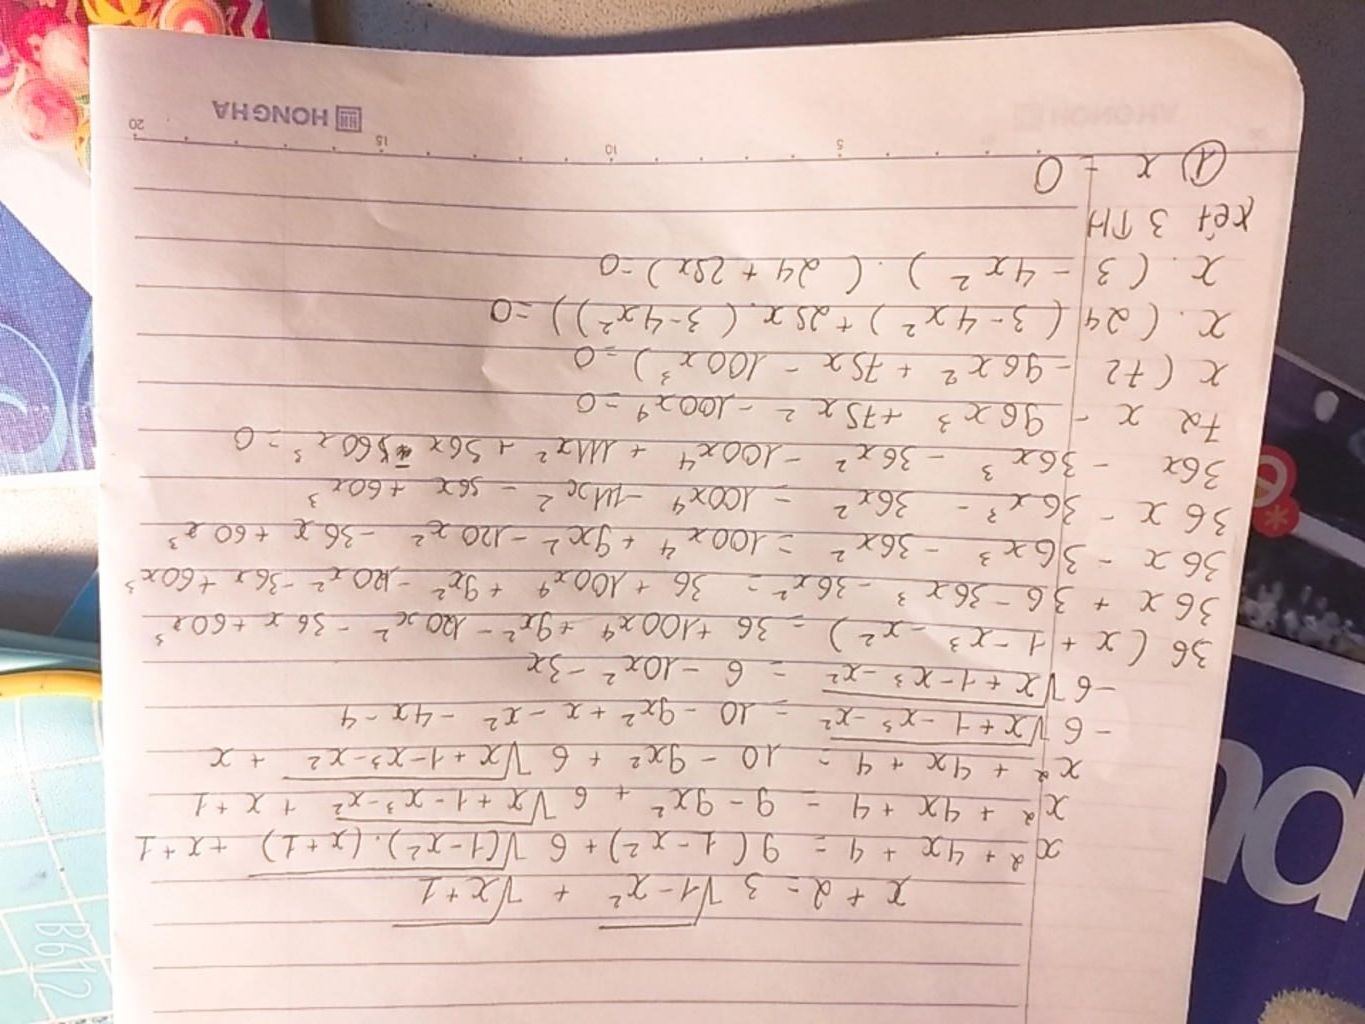 x + 2 = 3√(1-x²) + √(x+1)
x² + 4x + 4 = 9(1-x²) + 6√((1-x²).(x+1)) + x+1
x² + 4x + 4 = 9 - 9x² + 6√(x+1-x³-x²) + x+1
x² + 4x + 4 = 10 - 9x² + 6√(x+1-x³-x²) + x
-6√(x+1-x³-x²) = 10 - 9x² + x - x² - 4x - 4
-6√(x+1-x³-x²) = 6 - 10x² - 3x
36(x+1-x³-x²) = 36 + 100x⁴ + 9x² - 120x² - 36x + 60x³
36x + 36 - 36x³ - 36x² = 36 + 100x⁴ + 9x² - 120x² - 36x + 60x³
36x - 36x³ - 36x² = 100x⁴ + 9x² - 120x² - 36x + 60x³
36x - 36x³ - 36x² = 100x⁴ - 111x² - 36x + 60x³
36x - 36x³ - 36x² - 100x⁴ + 111x² + 36x - 60x³ = 0
72x - 96x³ + 75x² - 100x⁴ = 0
x(72 - 96x² + 75x - 100x³) = 0
x.(24(3-4x²) + 25x.(3-4x²)) = 0
x.(3-4x²).(24+25x) = 0
xét 3 TH
① x = 0
5 10 15 20
HONG HA
B612